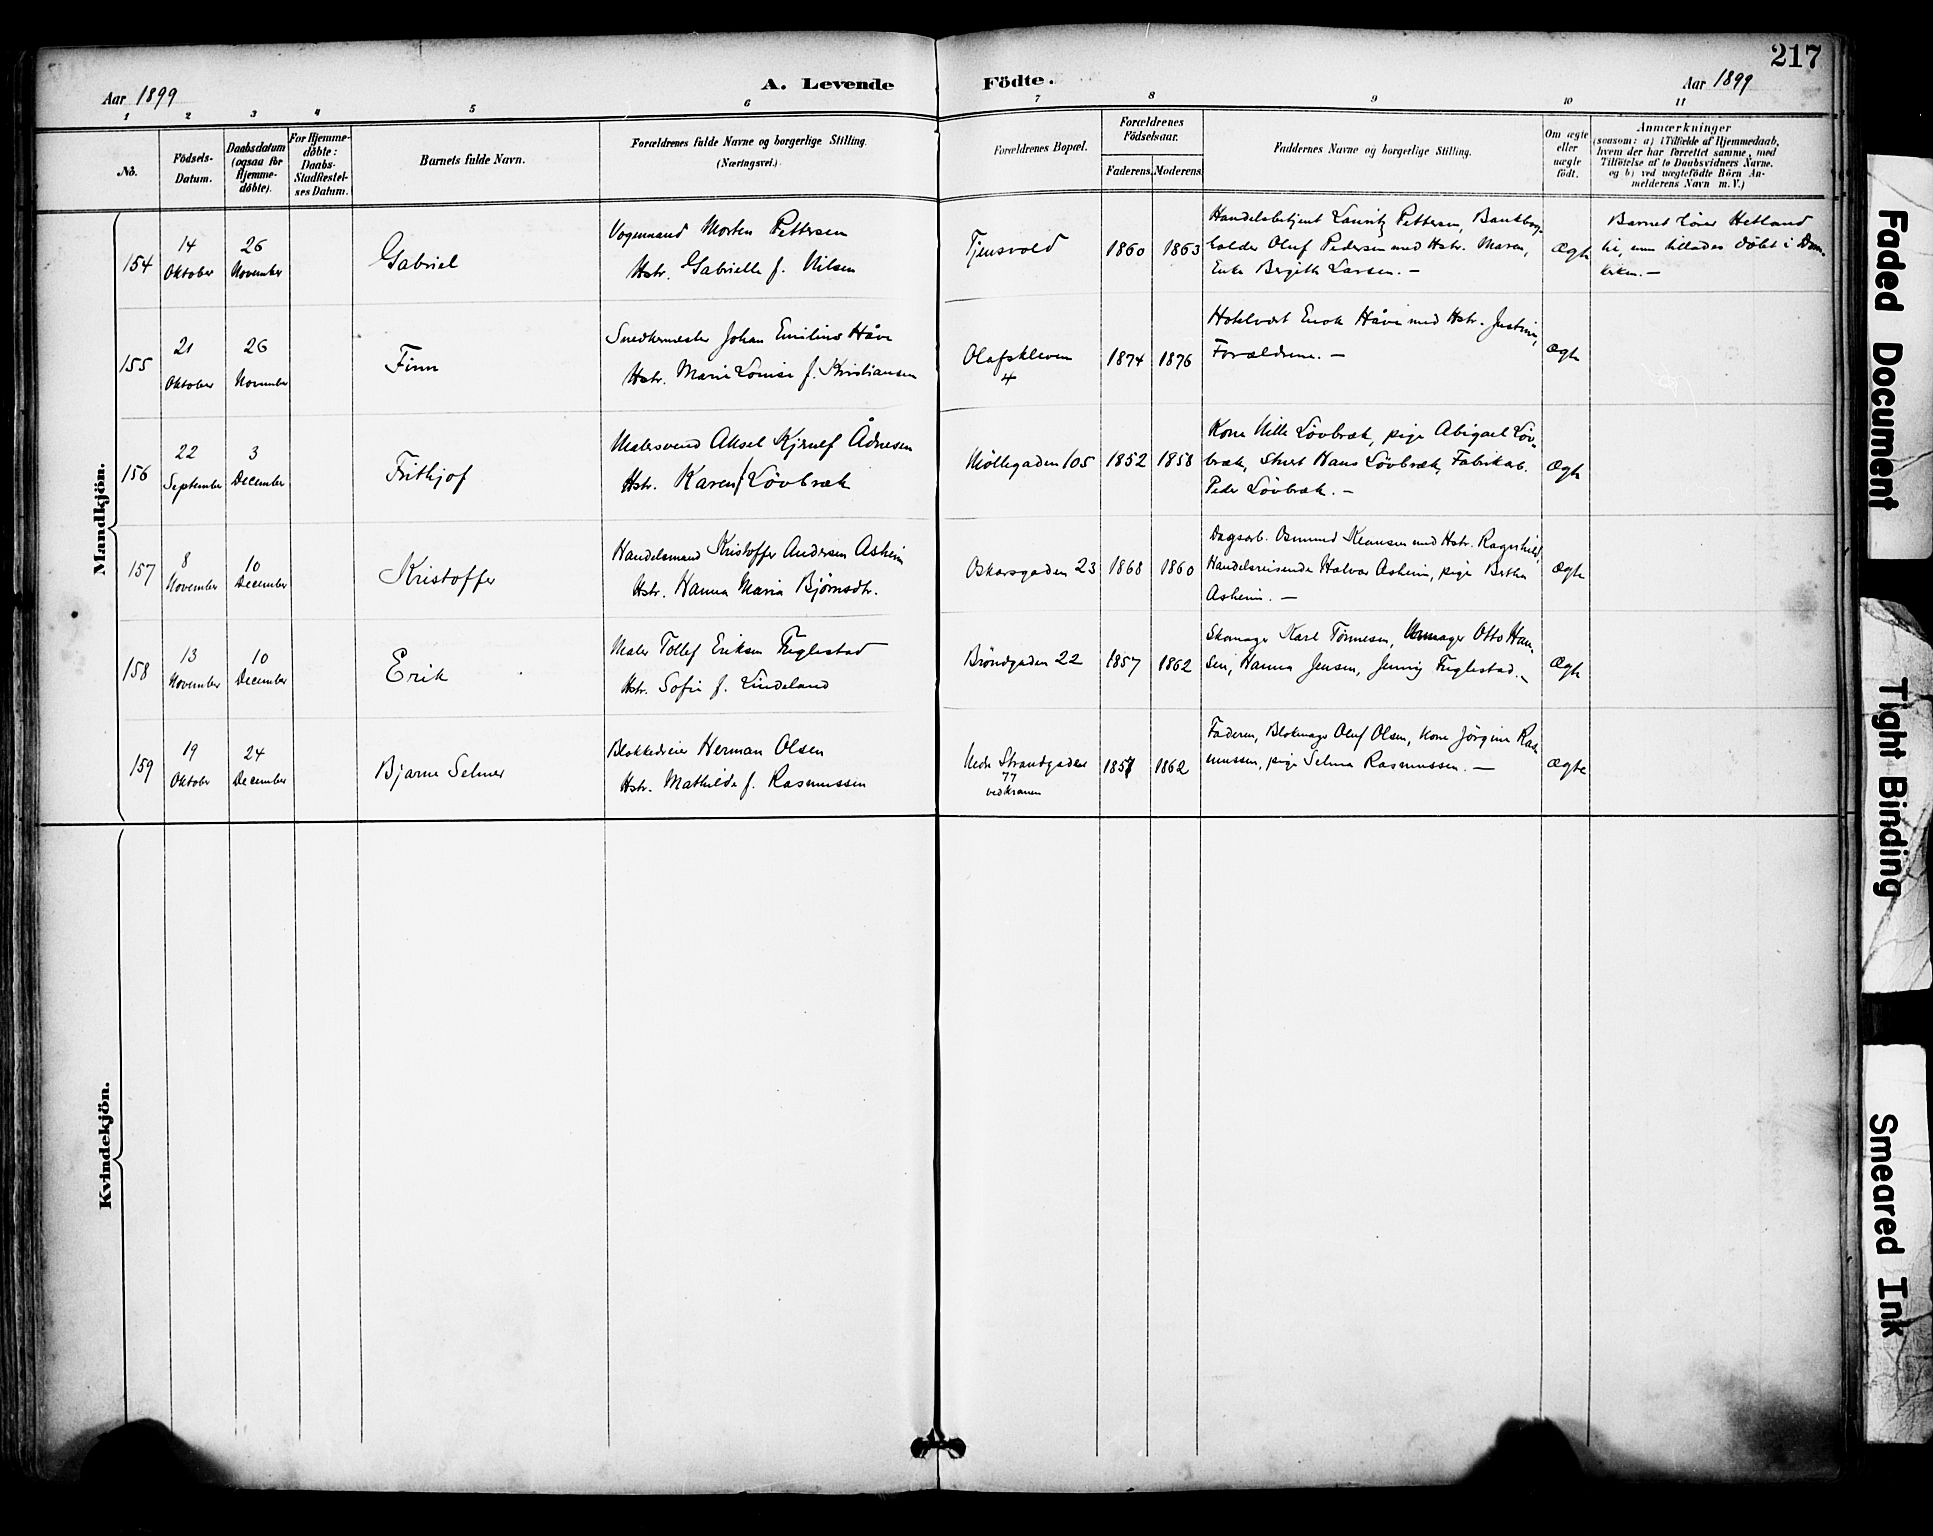 217
Aar 1899
A. Levende
Födte.
Aar 1899
1 2 3 4 5 6 7 8 9 10 11
No.
Födsels-
Datum.
Daabsdatum
(ogsaa for
Hjemme-
döbte).
For Hjemme-
döbte:
Daabs-
Stadfæstel-
ses Datum.
Barnets fulde Navn.
Forældrenes fulde Navne og borgerlige Stilling
(Næringsvei).
Forældrenes Bopæl.
Forældrenes
Födselsaar.
Faderens. Moderens.
Faddernes Navne og borgerlige Stilling.
Om ægte
eller
uægte
födt.
Anmærkninger
(saasom: a) i Tilfælde af Hjemmedaab,
hvem der har forrettet samme, med
Tilföielse af to Daabsvidners Navne.
og b) ved uægtefödte Börn An-
melderens Navn m. V.)
Mandkjön.
154
14
Oktober
26
November
Gabriel
Vognmand Morten Pettersen
Hstr. Gabrielle f. Nilsen
Tjensvold
1860
1863
Handelsbetjent Lauritz Pettersen,
holder Oluf Pedersen med Hstr. Maren,
Enke Birgitte Larsen. –
Ægte
Barnet Hetland
til, men tillades döbt i Dom-
kirken. –
155
21
Oktober
26
November
Finn
Snedkermester Johan Emilius Håve
Hstr. Marie Louise f. Kristiansen
Olafskleven
4
1874
1876
Hotelvært Enok Håve med Hstr. Justine,
Forældrene. –
Ægte
156
22
September
3
December
Frithjof
Malersvend Aksel Kjerulf Ådnesen
Hstr. Karen f Lövbræk
Möllegaden 105
1852
1858
Kone Nille Lövbræk, pige Abigael Löv-
bræk, Stuert Hans Lövbræk, Fabrikarb.
Peder Lövbræk. –
Ægte
157
8
November
10
December
Kristoffer
Handelsmand Kristoffer Andersen Asheim
Hstr. Hanna Maria Björnsdtr.
Oskarsgaden 23
1868
1860
Dagsarb. Osmund Klausen med Hstr. Ragnhild,
Handelsreisende Halvor Asheim, pige Bertha
Asheim. –
Ægte
158
13
November
10
December
Erik
Maler Tollef Eriksen Fuglestad
Hstr. Sofie f. Lindeland
Bröndgaden 22
1857
1862
Skomager Karl Tönnesen, Urmager Otto Han-
sen, Hanna Jensen, Jenny Fuglestad. –
Ægte
159
19
Oktober
24
December
Bjarne Selmer
Blokkedreier Herman Olsen
Hstr. Mathilde f. Rasmussen
Nedre Strandgaden
77
ved kranen
1857
1862
Faderen, Blokmager Oluf Olsen, Kone Jörgine Ras-
mussen, pige Selma Rasmussen. –
Ægte
Kvindekjön.
Faded Document
Tight Binding
Smeared Ink